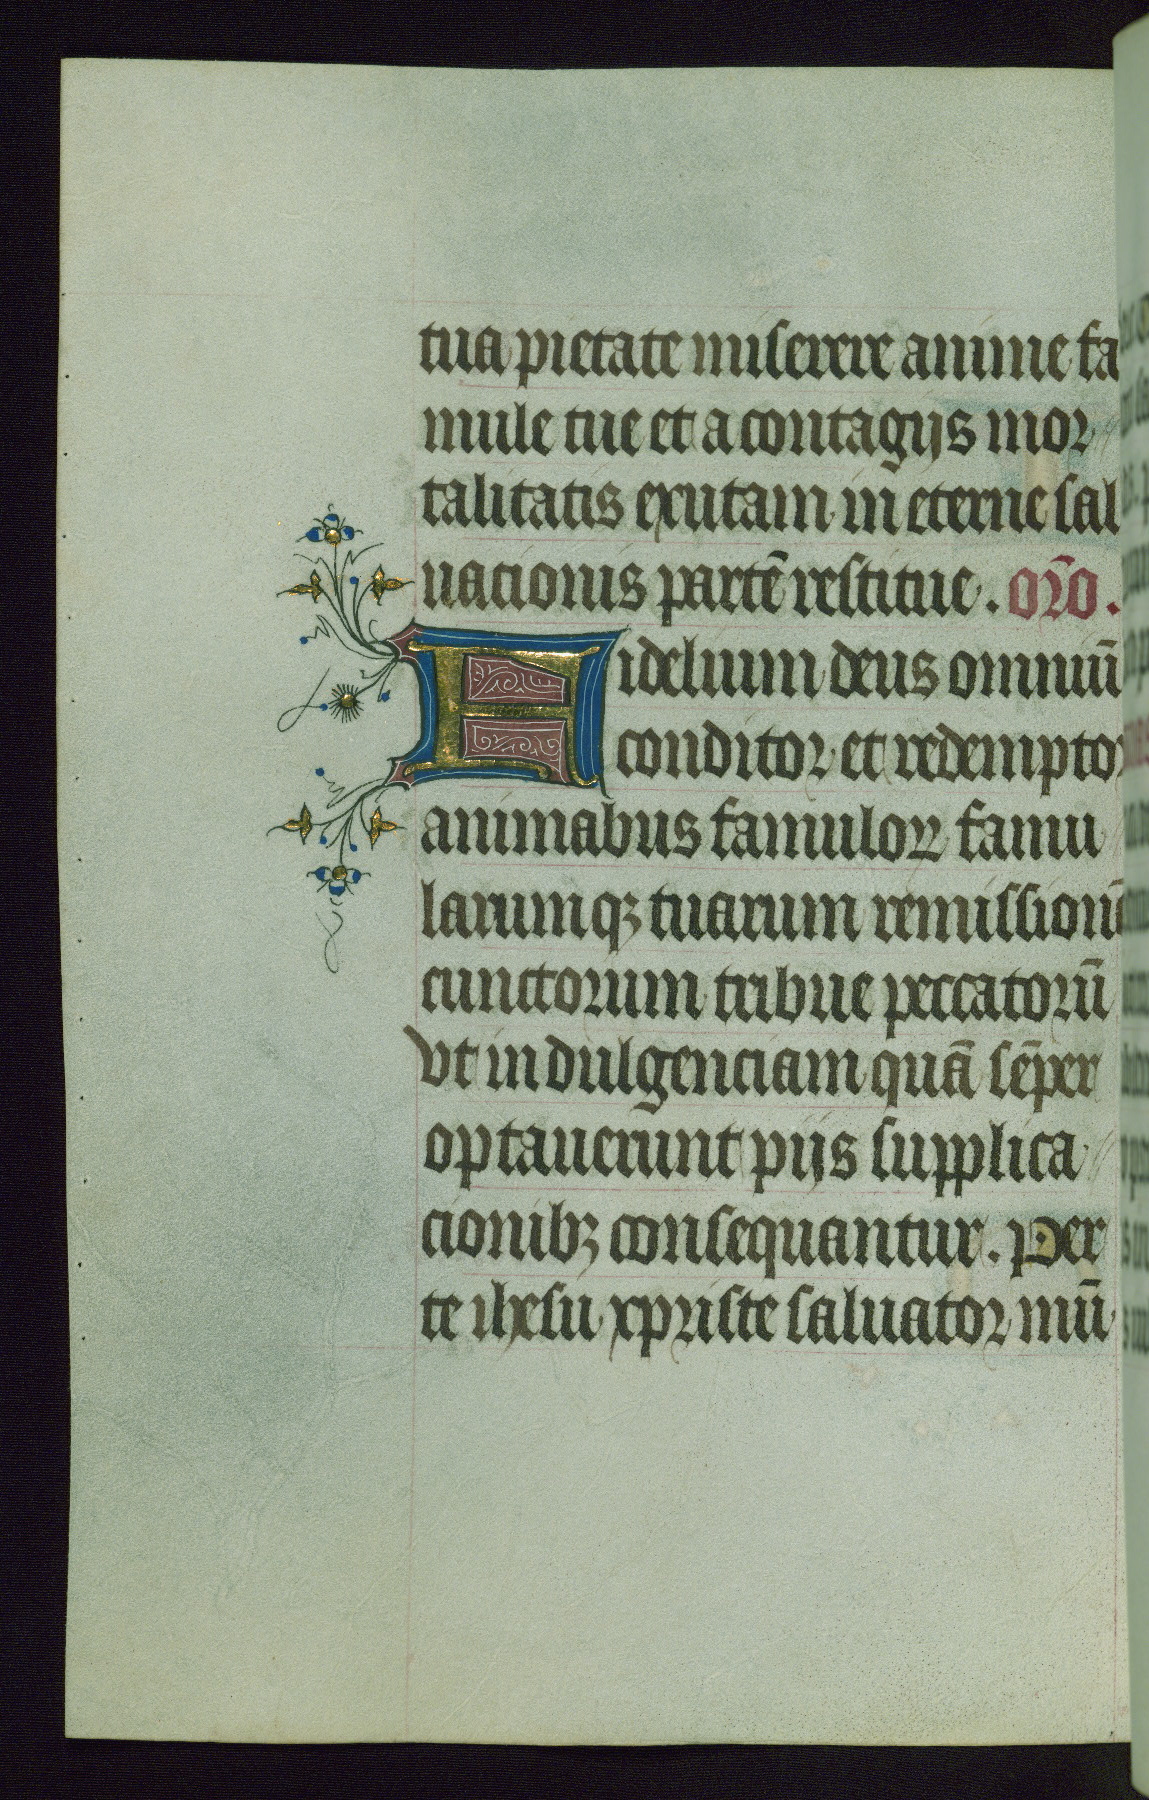 tua pietate miserere anime fa
mule tue et a contagijs mor
talitatis exutam in eterne sal
uacionis partē restitue. or̄o.
Fidelium deus omniū
conditor et redemptor
animabus famuloꝝ famu
larumqꝫ tuarum remissionē
cunctorum tribue peccatorū
vt indulgenciam quā sēper
optauerunt pijs supplica
cionibꝫ consequantur. Per
te ihesu xpriste saluator mū